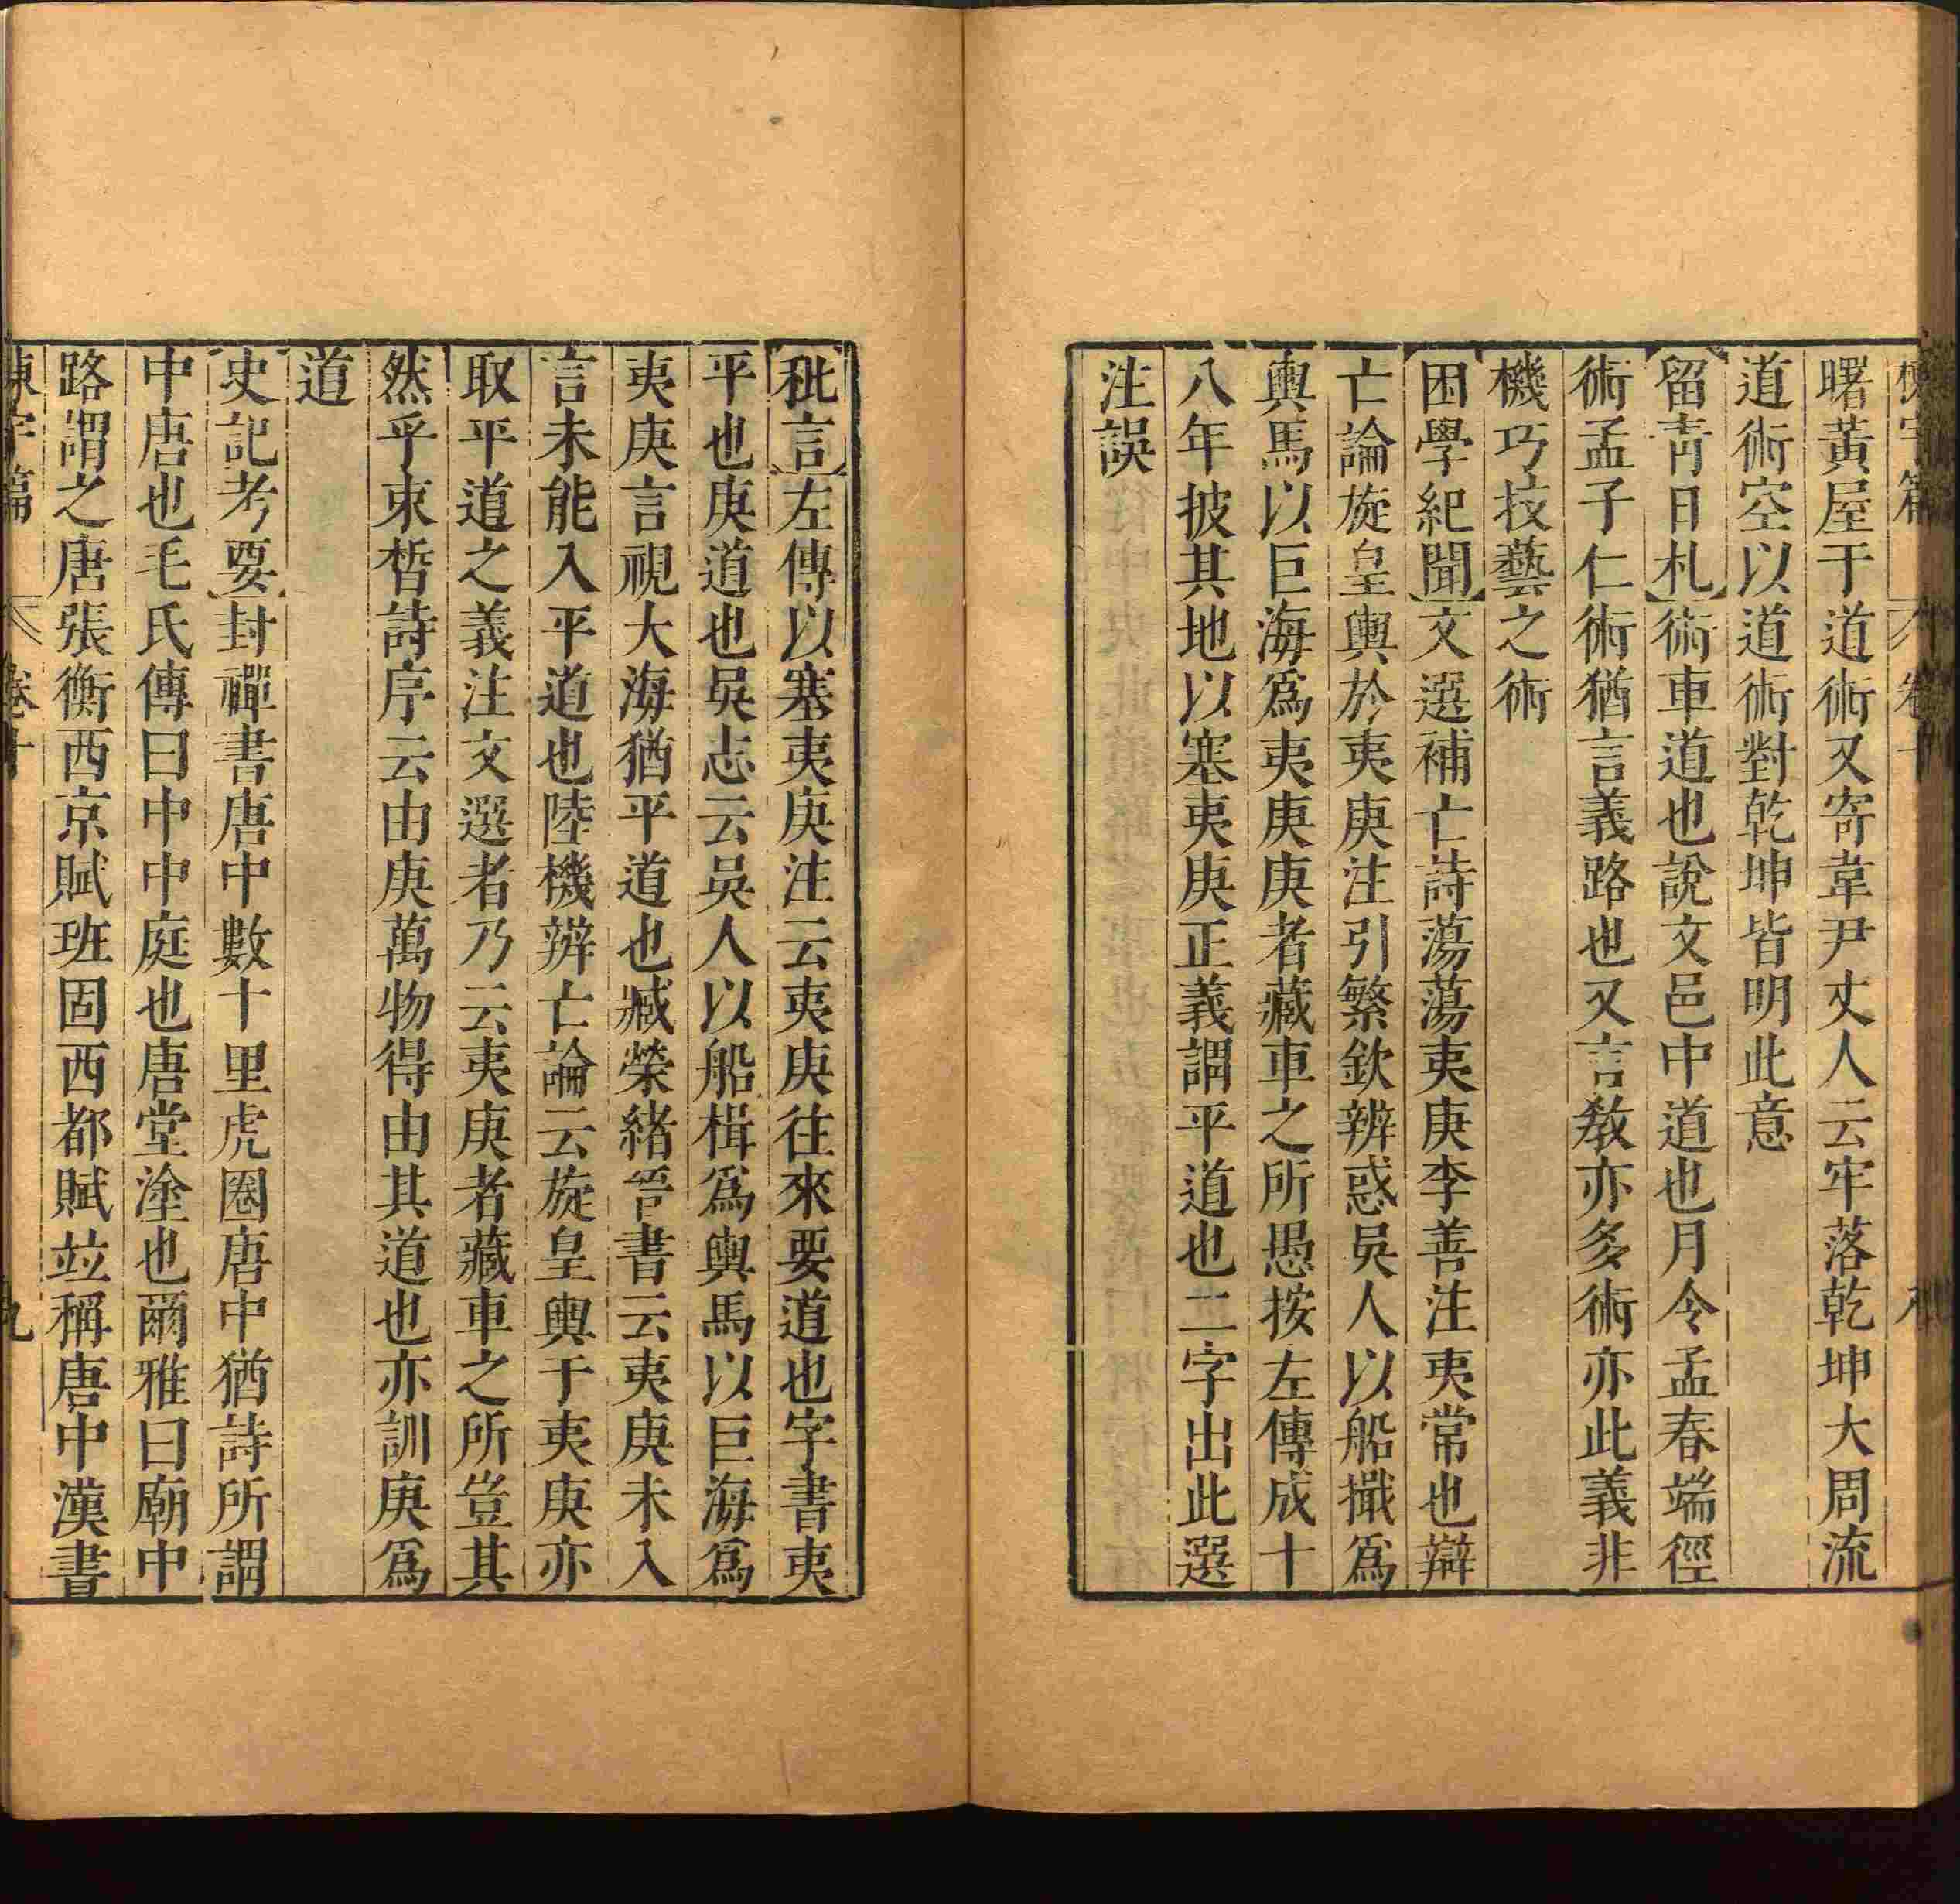 曙黃屋于道術又寄韋尹丈人云牢落乾坤大周流
道術空以道術對乾坤皆明此意
留青日札術車道也說文邑中道也月令孟春端徑
術孟子仁術猶言義路也又言敎亦多術亦此義非
機巧技藝之術
困學紀聞文選補亡詩蕩蕩夷庚李善注夷常也辯
亡論旋皇輿於夷庚注引繁欽辨惑吳人以船檝爲
輿馬以巨海爲夷庚庚者藏車之所愚按左傳成十
八年披其地以塞夷庚正義謂平道也二字出此選
注誤
秕言左傳以塞夷庚注云夷庚往來要道也字書夷
平也庚道也吳志云吳人以船楫爲輿馬以巨海爲
夷庚言視大海猶平道也臧榮緒晉書云夷庚未入
言未能入平道也陸機辨亡論云旋皇輿于夷庚亦
取平道之義注文選者乃云夷庚者藏車之所豈其
然乎束皙詩序云由庚萬物得由其道也亦訓庚爲
道
史記考要封禪書唐中數十里虎圈唐中猶詩所謂
中唐也毛氏傳曰中中庭也唐堂塗也爾雅曰廟中
路謂之唐張衡西京賦班固西都賦竝稱唐中漢書